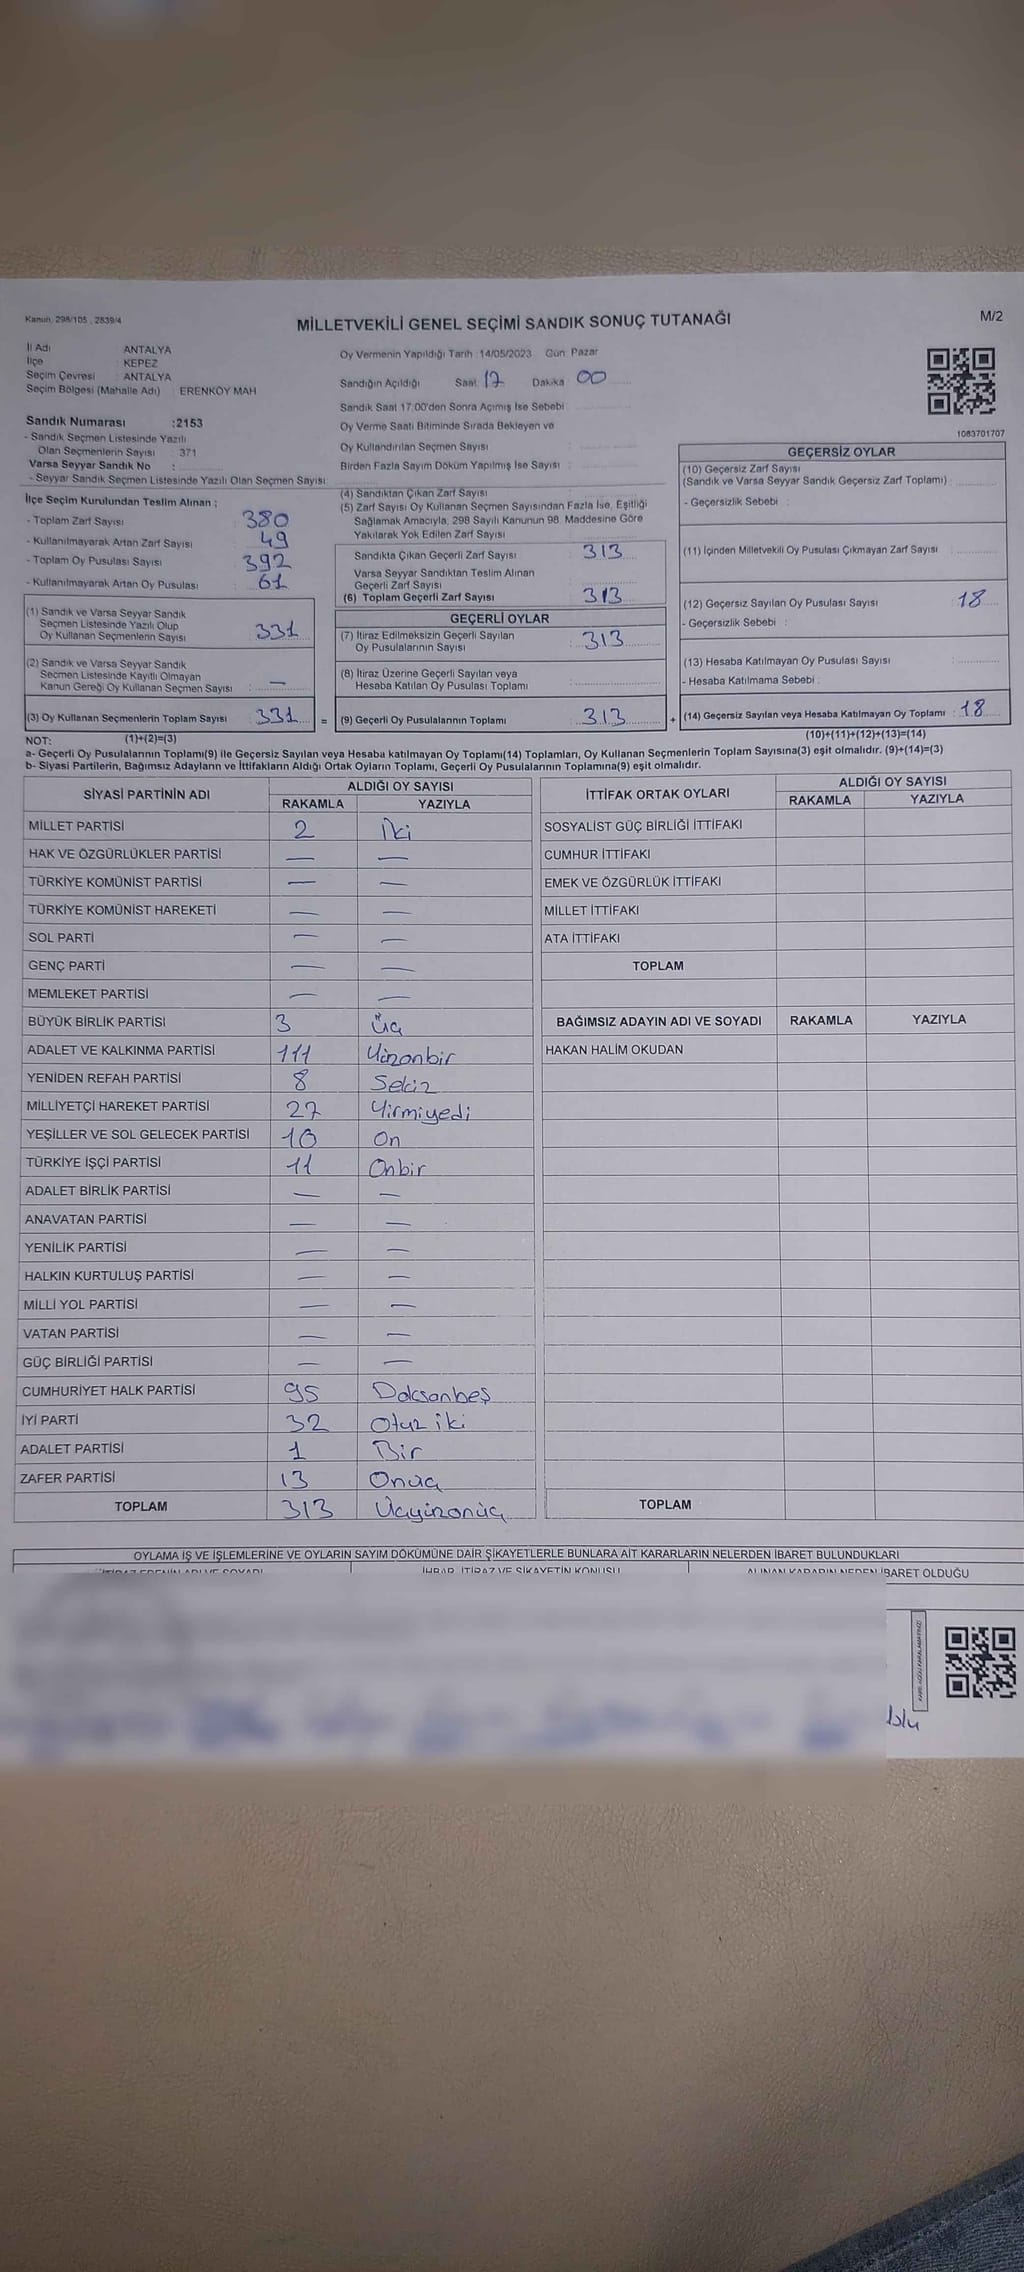 Kanun, 298/105 , 2839/4
MİLLETVEKİLİ GENEL SEÇİMİ SANDIK SONUÇ TUTANAĞI
M/2
İl Adı : ANTALYA
İlçe : KEPEZ
Seçim Çevresi : ANTALYA
Seçim Bölgesi (Mahalle Adı) : ERENKÖY MAH
Oy Vermenin Yapıldığı Tarih :14/05/2023 Gün Pazar
Sandığın Açıldığı Saat 17 Dakika 00
Sandık Saat 17:00'den Sonra Açımış İse Sebebi
Oy Verme Saati Bitiminde Sırada Bekleyen ve
Oy Kullandırılan Seçmen Sayısı :
Birden Fazla Sayım Döküm Yapılmış İse Sayısı :
1083701707
Sandık Numarası :2153
- Sandık Seçmen Listesinde Yazılı
Olan Seçmenlerin Sayısı : 371
Varsa Seyyar Sandık No :
- Seyyar Sandık Seçmen Listesinde Yazılı Olan Seçmen Sayısı:
İlçe Seçim Kurulundan Teslim Alınan ;
- Toplam Zarf Sayısı : 380
- Kullanılmayarak Artan Zarf Sayısı : 49
- Toplam Oy Pusulası Sayısı : 392
- Kullanılmayarak Artan Oy Pusulası : 61
(1) Sandık ve Varsa Seyyar Sandık
Seçmen Listesinde Yazılı Olup
Oy Kullanan Seçmenlerin Sayısı : 331
(2) Sandık ve Varsa Seyyar Sandık
Seçmen Listesinde Kayıtlı Olmayan
Kanun Gereği Oy Kullanan Seçmen Sayısı : —
(3) Oy Kullanan Seçmenlerin Toplam Sayısı : 331 =
(4) Sandıktan Çıkan Zarf Sayısı :
(5) Zarf Sayısı Oy Kullanan Seçmen Sayısından Fazla İse, Eşitliği
Sağlamak Amacıyla, 298 Sayılı Kanunun 98. Maddesine Göre
Yakılarak Yok Edilen Zarf Sayısı
Sandıkta Çıkan Geçerli Zarf Sayısı : 313
Varsa Seyyar Sandıktan Teslim Alınan
Geçerli Zarf Sayısı :
(6) Toplam Geçerli Zarf Sayısı : 313
GEÇERLİ OYLAR
(7) İtiraz Edilmeksizin Geçerli Sayılan
Oy Pusulalarının Sayısı : 313
(8) İtiraz Üzerine Geçerli Sayılan veya
Hesaba Katılan Oy Pusulası Toplamı :
(9) Geçerli Oy Pusulalarının Toplamı : 313 +
GEÇERSİZ OYLAR
(10) Geçersiz Zarf Sayısı
(Sandık ve Varsa Seyyar Sandık Geçersiz Zarf Toplamı) :
- Geçersizlik Sebebi :
(11) İçinden Milletvekili Oy Pusulası Çıkmayan Zarf Sayısı :
(12) Geçersiz Sayılan Oy Pusulası Sayısı : 18
- Geçersizlik Sebebi :
(13) Hesaba Katılmayan Oy Pusulası Sayısı :
- Hesaba Katılmama Sebebi :
(14) Geçersiz Sayılan veya Hesaba Katılmayan Oy Toplamı : 18
NOT: (1)+(2)=(3) (10)+(11)+(12)+(13)=(14)
a- Geçerli Oy Pusulalarının Toplamı(9) ile Geçersiz Sayılan veya Hesaba katılmayan Oy Toplamı(14) Toplamları, Oy Kullanan Seçmenlerin Toplam Sayısına(3) eşit olmalıdır. (9)+(14)=(3)
b- Siyasi Partilerin, Bağımsız Adayların ve İttifakların Aldığı Ortak Oyların Toplamı, Geçerli Oy Pusulalarının Toplamına(9) eşit olmalıdır.
SİYASİ PARTİNİN ADI ALDIĞI OY SAYISI
RAKAMLA YAZIYLA
MİLLET PARTİSİ 2 İki
HAK VE ÖZGÜRLÜKLER PARTİSİ — —
TÜRKİYE KOMÜNİST PARTİSİ — —
TÜRKİYE KOMÜNİST HAREKETİ — —
SOL PARTİ — —
GENÇ PARTİ — —
MEMLEKET PARTİSİ — —
BÜYÜK BİRLİK PARTİSİ 3 Üç
ADALET VE KALKINMA PARTİSİ 111 Yüzonbir
YENİDEN REFAH PARTİSİ 8 Sekiz
MİLLİYETÇİ HAREKET PARTİSİ 27 Yirmiyedi
YEŞİLLER VE SOL GELECEK PARTİSİ 10 On
TÜRKİYE İŞÇİ PARTİSİ 11 Onbir
ADALET BİRLİK PARTİSİ — —
ANAVATAN PARTİSİ — —
YENİLİK PARTİSİ — —
HALKIN KURTULUŞ PARTİSİ — —
MİLLİ YOL PARTİSİ — —
VATAN PARTİSİ — —
GÜÇ BİRLİĞİ PARTİSİ — —
CUMHURİYET HALK PARTİSİ 95 Doksanbeş
İYİ PARTİ 32 Otuz iki
ADALET PARTİSİ 1 Bir
ZAFER PARTİSİ 13 Onüç
TOPLAM 313 Üçyüzonüç
İTTİFAK ORTAK OYLARI ALDIĞI OY SAYISI
RAKAMLA YAZIYLA
SOSYALİST GÜÇ BİRLİĞİ İTTİFAKI
CUMHUR İTTİFAKI
EMEK VE ÖZGÜRLÜK İTTİFAKI
MİLLET İTTİFAKI
ATA İTTİFAKI
TOPLAM
BAĞIMSIZ ADAYIN ADI VE SOYADI RAKAMLA YAZIYLA
HAKAN HALİM OKUDAN
TOPLAM
OYLAMA İŞ VE İŞLEMLERİNE VE OYLARIN SAYIM DÖKÜMÜNE DAİR ŞİKAYETLERLE BUNLARA AİT KARARLARIN NELERDEN İBARET BULUNDUKLARI
İTİRAZ EDENİN ADI VE SOYADI İHBAR, İTİRAZ VE ŞİKAYETİN KONUSU ALINAN KARARIN NEDEN İBARET OLDUĞU